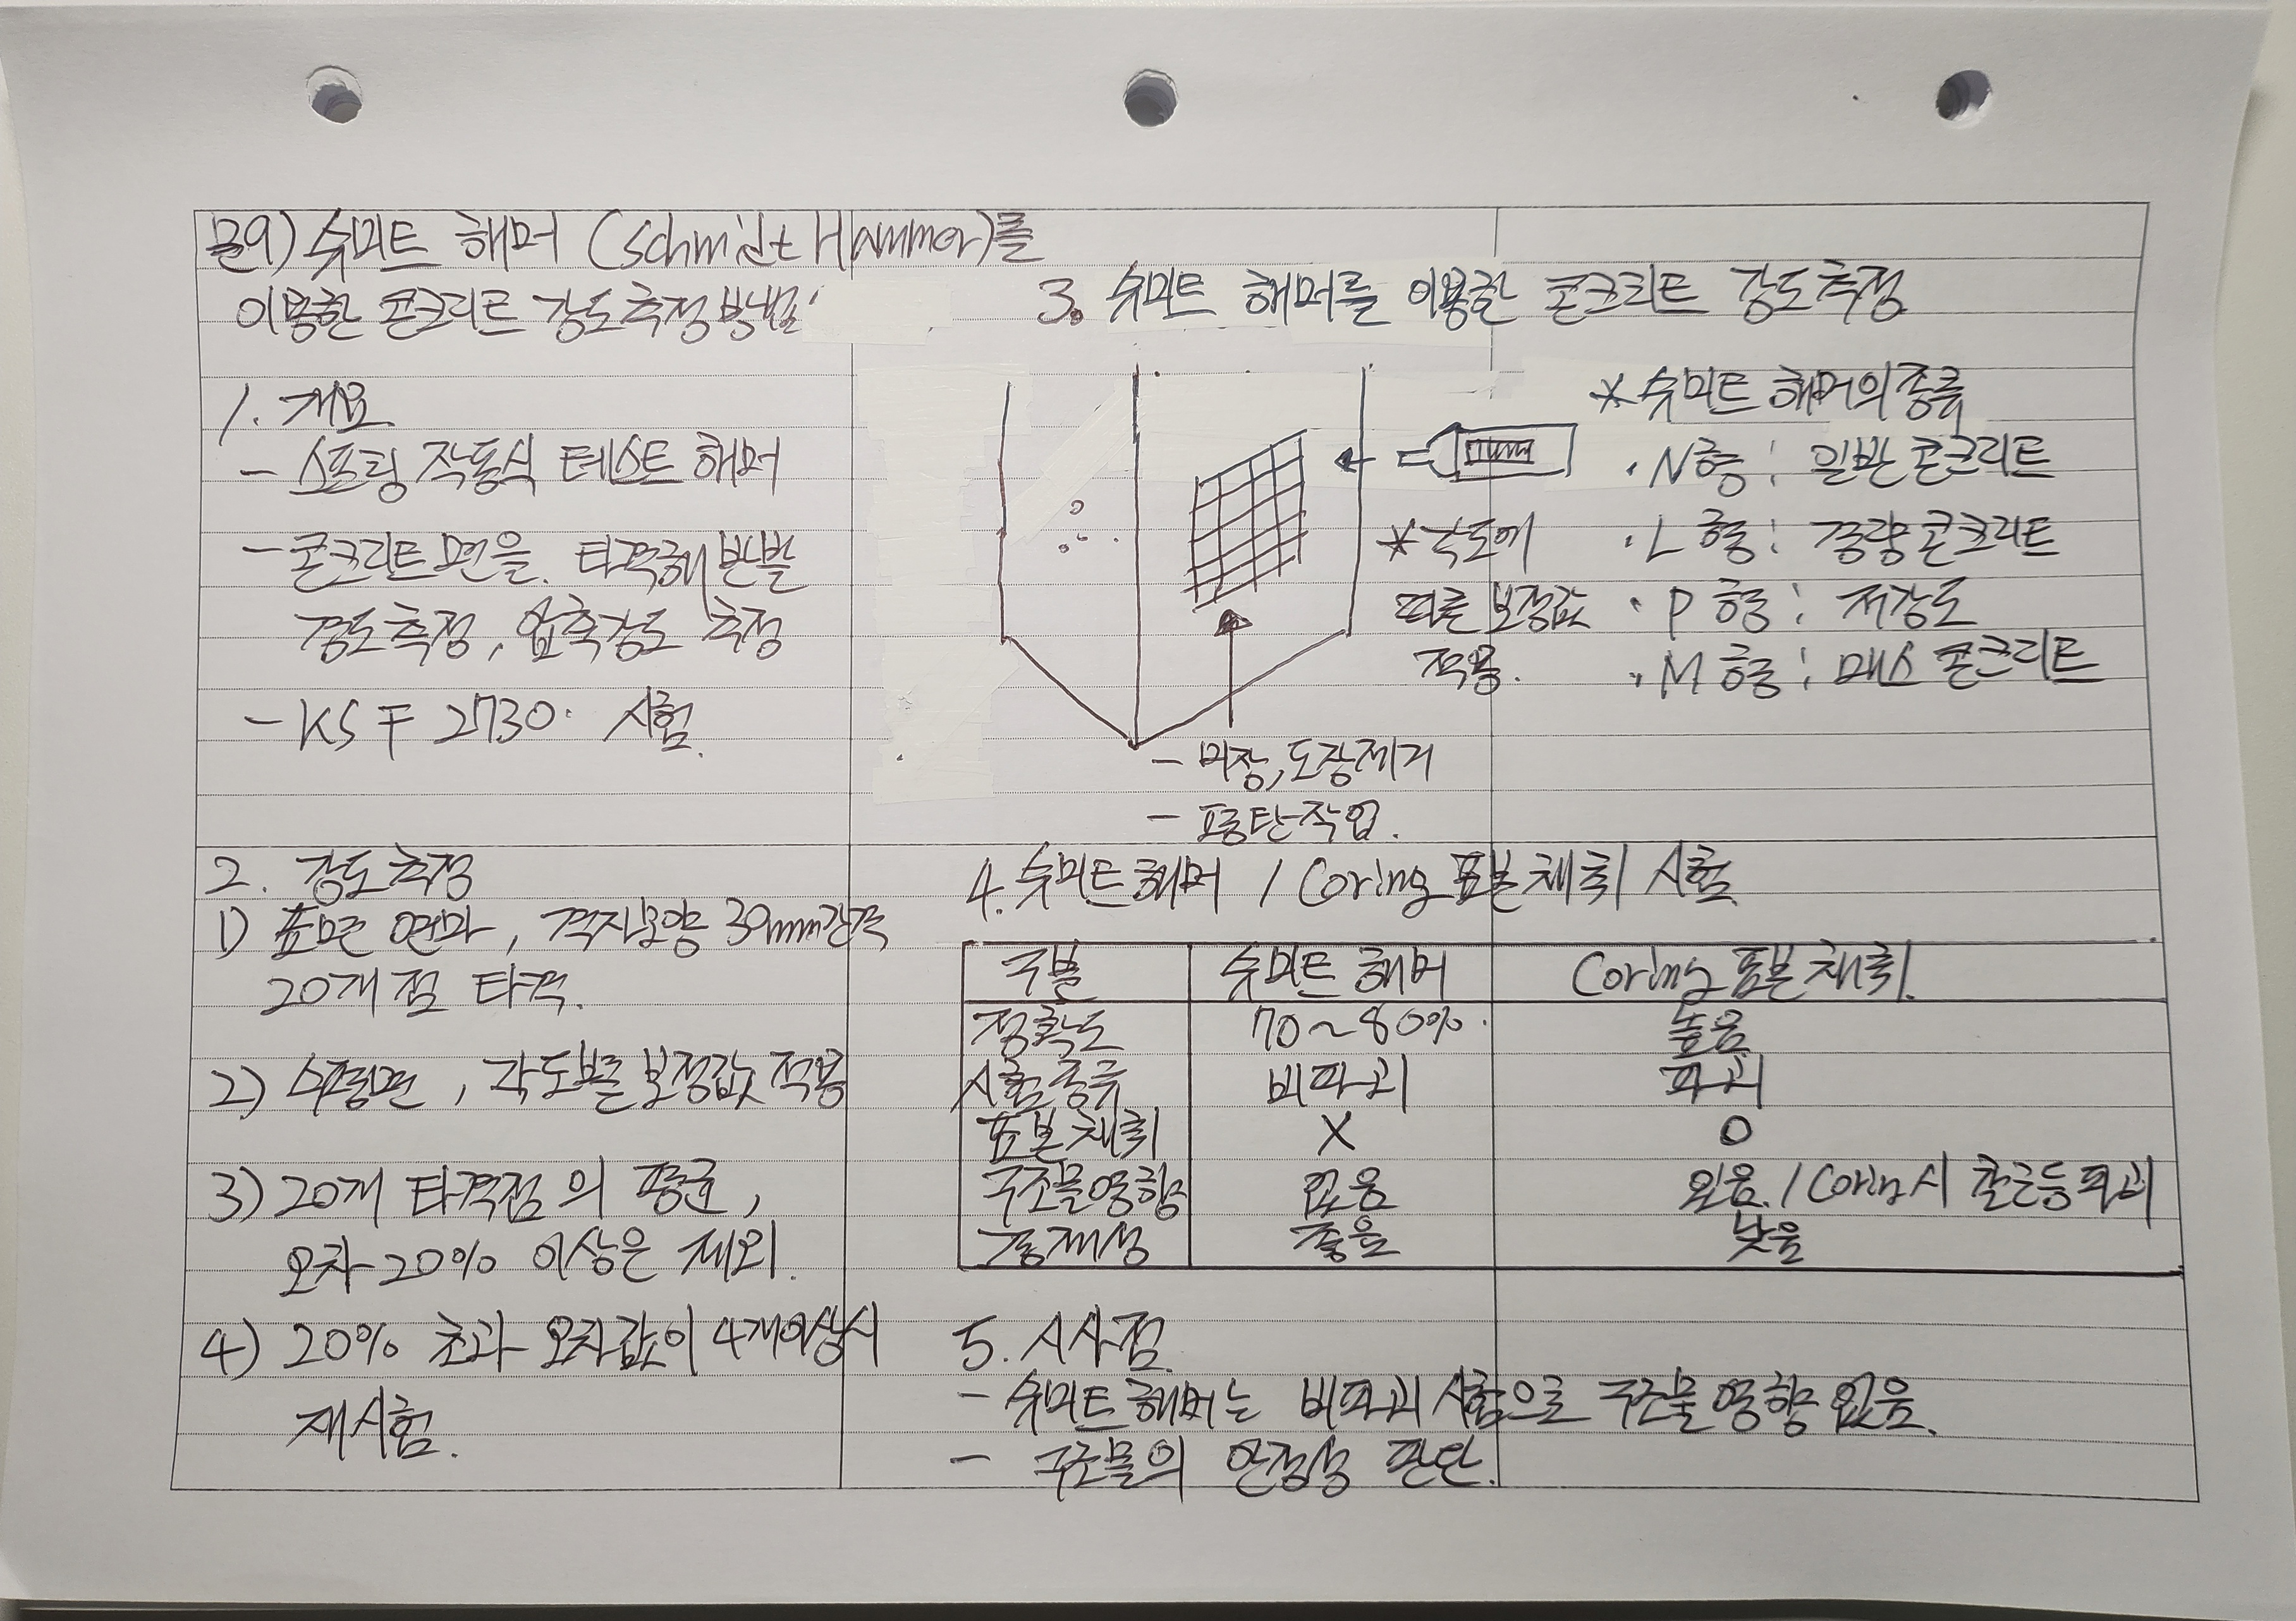 문9) 슈미트 해머 (Schmidt Hammer)를
이용한 콘크리트 강도측정방법
1. 개요
- 스프링 작동식 테스트 해머
- 콘크리트면을 타격해 반발
경도측정, 압축강도 측정
- KS F 2730 시험.
2. 강도측정
1) 표면 연마, 격자모양 30mm간격
20개 점 타격.
2) 수평면, 각도별로 보정값 적용
3) 20개 타격점의 평균,
오차 20% 이상은 제외.
4) 20% 초과 오차값이 4개이상시
재시험.
3. 슈미트 해머를 이용한 콘크리트 강도측정
* 각도에
따른 보정값
적용.
- 미장, 도장제거
- 평탄작업.
* 슈미트 해머의종류
· N형 : 일반콘크리트
· L형 : 경량콘크리트
· P형 : 저강도
· M형 : 매스 콘크리트
4. 슈미트해머 / Coring 표본채취 시험
구분 슈미트 해머 Coring 표본채취.
정확도 70~80% 높음
시험종류 비파괴 파괴
표본채취 X O
구조물영향 없음 있음. / Coring시 철근등 파괴
경제성 좋음 낮음
5. 시사점.
- 슈미트해머는 비파괴 시험으로 구조물영향 없음.
- 구조물의 안정성 판단.